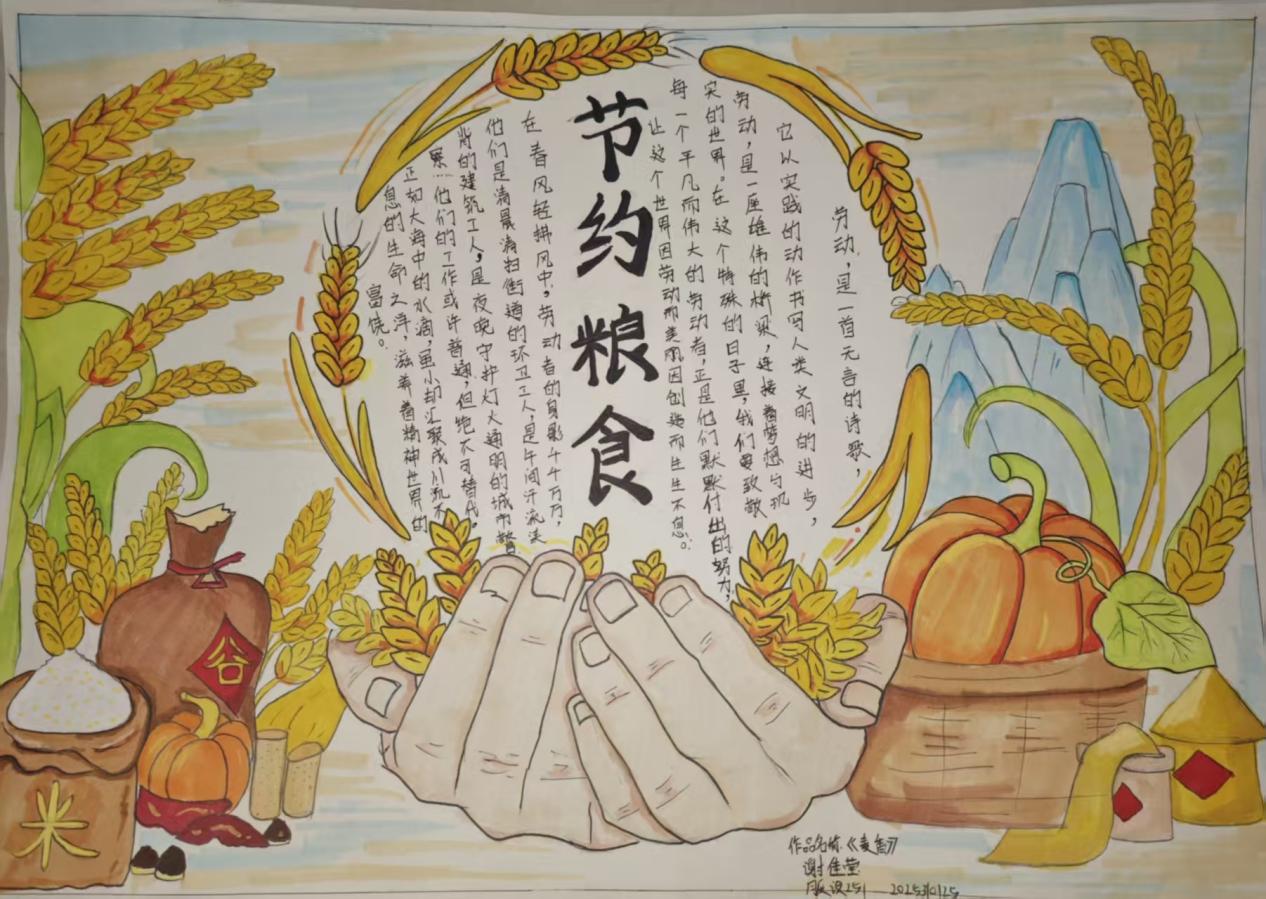 节约粮食
劳动，是一首无言的诗歌，
它以实践的动作书写人类文明的进步，
劳动，是一座雄伟的桥梁，连接着梦想与现
实的世界。在这个特殊的日子里，我们要致敬
每一个平凡而伟大的劳动者，正是他们默默付出的努力，
让这个世界因劳动而美丽因创造而生生不息。
在春风轻拂风中，劳动者的身影千千万万，
他们是清晨清扫街道的环卫工人，是午间汗流浃
背的建筑工人，是夜晚守护灯火通明的城市警
察…他们的工作或许普通，但绝不可替代。
正如大海中的水滴，虽小却汇聚成川流不
息的生命之洋，滋养着精神世界的
富饶。
谷
米
作品名称：《麦香》
谢佳莹
服设251 2025.10.25